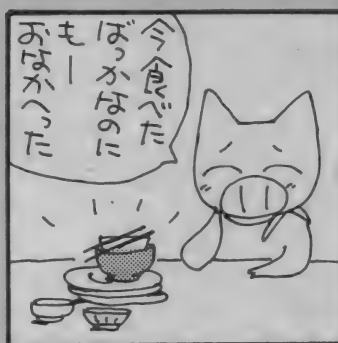 今食べた
ばっかなのに
もー
おなかへった